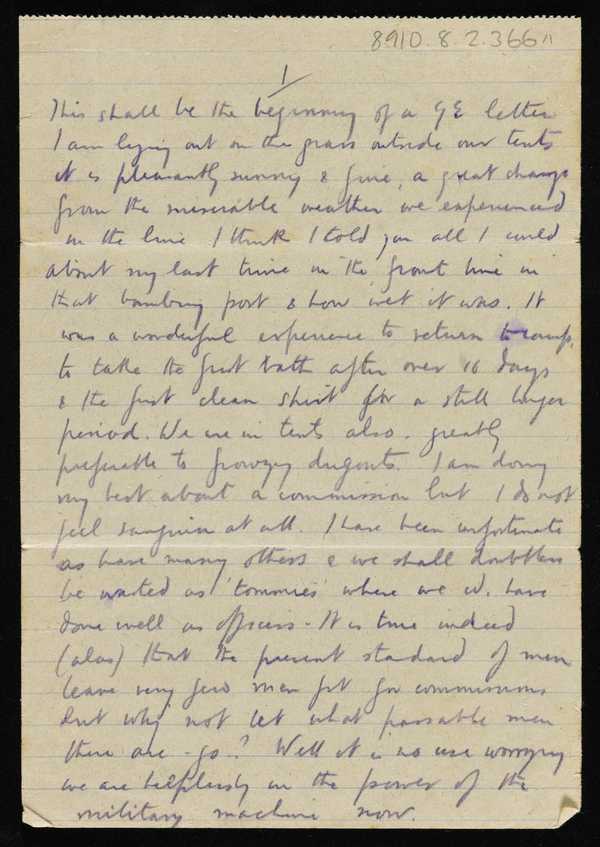 8910.8.2.366
1
This shall be the beginning of a GE letter
I am lying out on the grass outside our tents
it is pleasantly sunny & fine, a great change
from the miserable weather we experienced
in the line I think I told you all I could
about my last time in the front line in
that bombing post & how wet it was. It
was a wonderful experience to return to camp,
to take the first bath after over 16 days
& the first clean shirt for a still longer
period. We are in tents also. greatly
preferable to frowzy dugouts. I am doing
my best about a commission but I do not
feel sanguine at all. I have been unfortunate
as have many others & we shall doubtless
be wasted as 'tommies' where we wd. have
done well as officers - It is true indeed
(alas) that the present standard of men
leave very few men fit for commissions
but why not let what passable men
there are - go? Well it is no use worrying
we are helplessly in the power of the
military machine now.